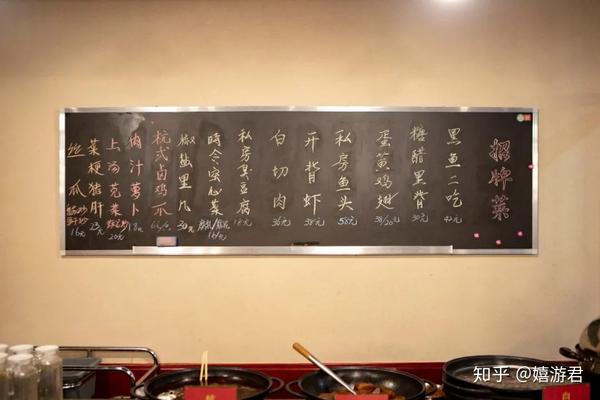 招牌菜
黑鱼二吃
42元
糖醋黑背
30元
蛋黄鸡翅
38/20元
私房鱼头
58元
开背虾
58元
白切肉
36元
私房臭豆腐
18元
時令蜜心菜
16元
椒盐里几
30元
杭式卤鸡爪
肉汁萝卜
18元
上汤苋菜
20元
菜梗猪肝
23元
丝瓜
16元
知乎 @嬉游君